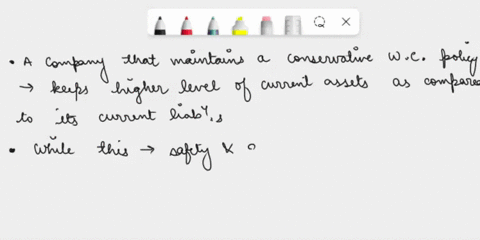 • A company that maintains a conservative W.C. policy
→ keeps higher level of current assets as compared
to its current liabY.s
• While this → safety &